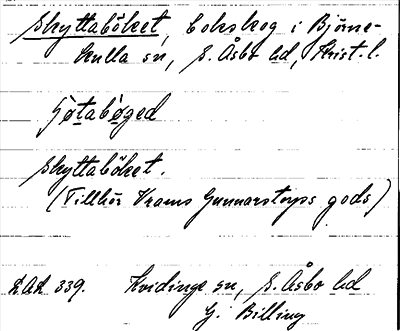 Skyttaböket, bokskog i Björne-
kulla sn, S. Åsbo hd, Krist. l.
Skyttaböket.
(Tillhör Vrams Gunnarstorps gods)
D.A.L. 339. Kvidinge sn, S. Åsbo hd
G. Billing